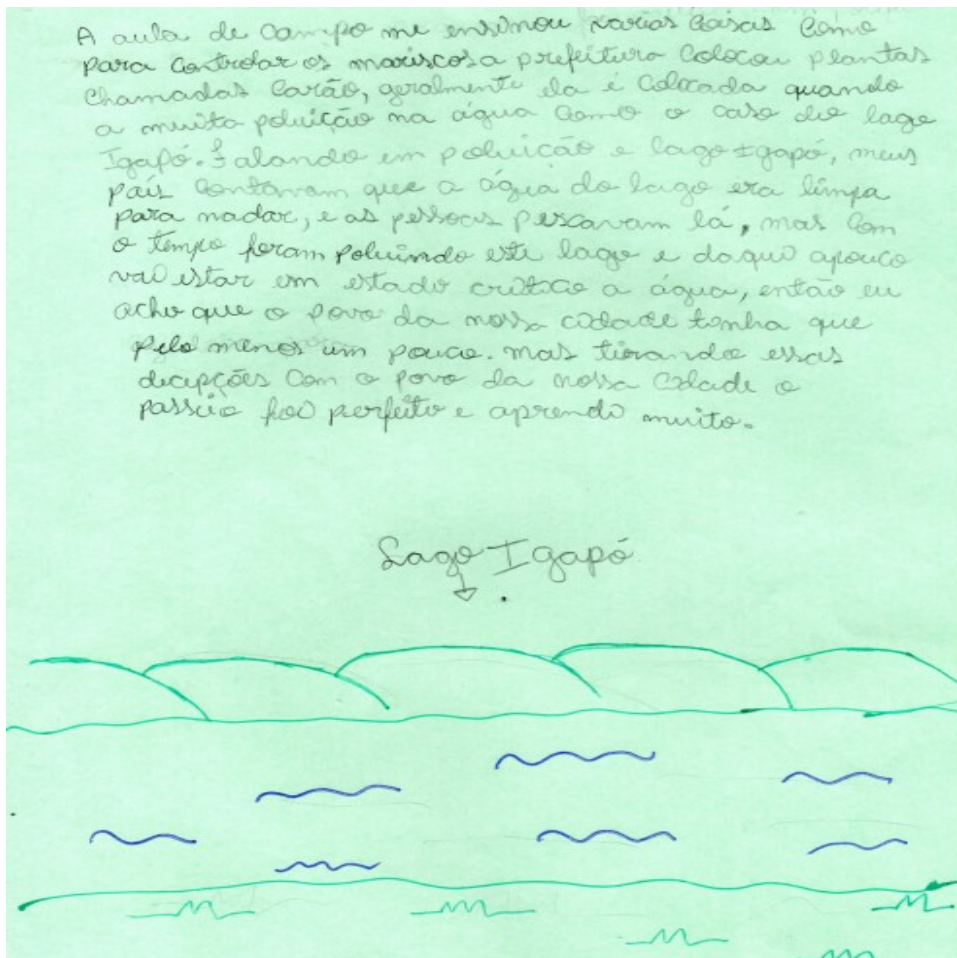 A aula de campo me ensinou varias coisas como
para controlar os mariscos a prefeitura colocou plantas
chamadas Carão, geralmente ela é colocada quando
a muita poluição na água como o caso do lago
Igapó. Falando em poluição e lago Igapó, meus
país contavam que a água do lago era limpa
para nadar, e as pessoas pescavam lá, mas com
o tempo foram poluindo este lago e daqui apouco
vai estar em estado critico a água, então eu
acho que o povo da nossa cidade tenha que
pelo menos um pouco. mas tirando essas
decepções com o povo da nossa cidade o
passeio foi perfeito e aprendi muito.
Lago Igapó